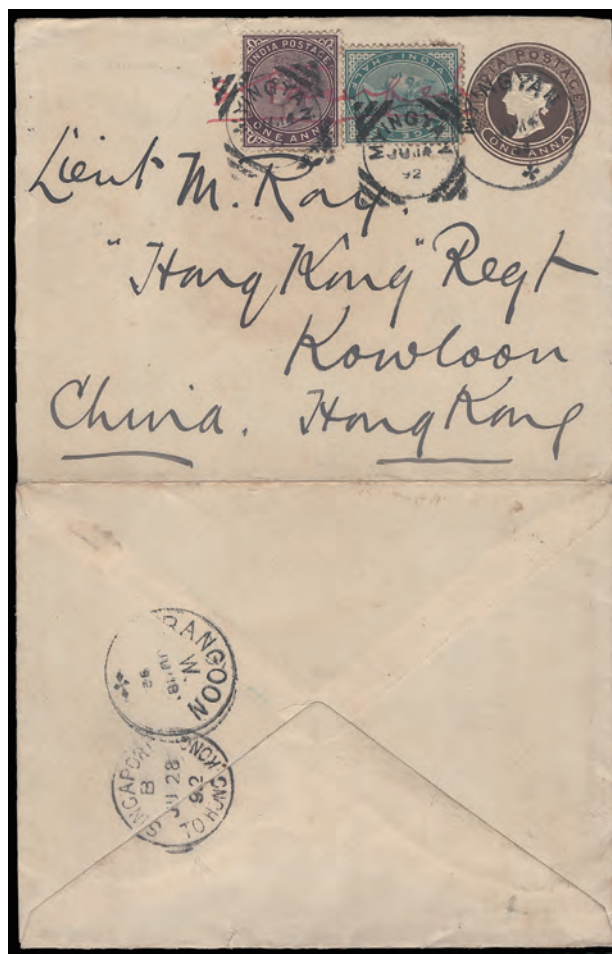 INDIA POSTAGE
ONE ANNA
INDIA
HALF
INDIA POSTAGE
ONE ANNA
MYINGYAN
MYINGYAN
JU 14
92
MYINGYAN
Lieut M. Ray.
"Hong Kong" Regt
Kowloon
China. Hong Kong
RANGOON
W
92
SINGAPORE
TO HONG KONG
B
JU 28
92